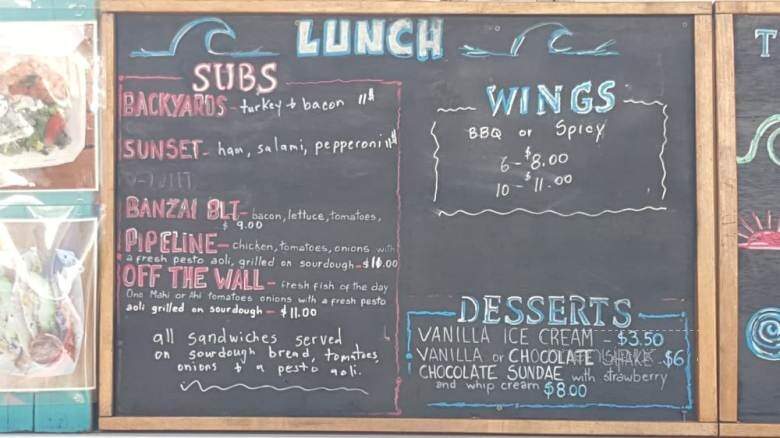 LUNCH
SUBS
BACKYARDS - turkey + bacon 11$
SUNSET - ham, salami, pepperoni 11$
BANZAI BLT - bacon, lettuce, tomatoes,
$ 9.00
PIPELINE - chicken, tomatoes, onions with
a fresh pesto aoli, grilled on sourdough - $10.00
OFF THE WALL - fresh fish of the day
Ono Mahi or Ahi tomatoes onions with a fresh pesto
aoli grilled on sourdough - $11.00
all sandwiches served
on sourdough bread, tomatoes,
onions + a pesto aoli.
WINGS
BBQ or Spicy
6 - $8.00
10 - $11.00
DESSERTS
VANILLA ICE CREAM - $3.50
VANILLA or CHOCOLATE SHAKE - $6
CHOCOLATE SUNDAE with strawberry
and whip cream $8.00
T